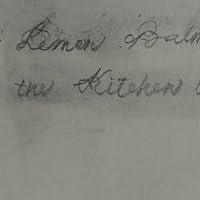 Lemon Balm
the Kitchen